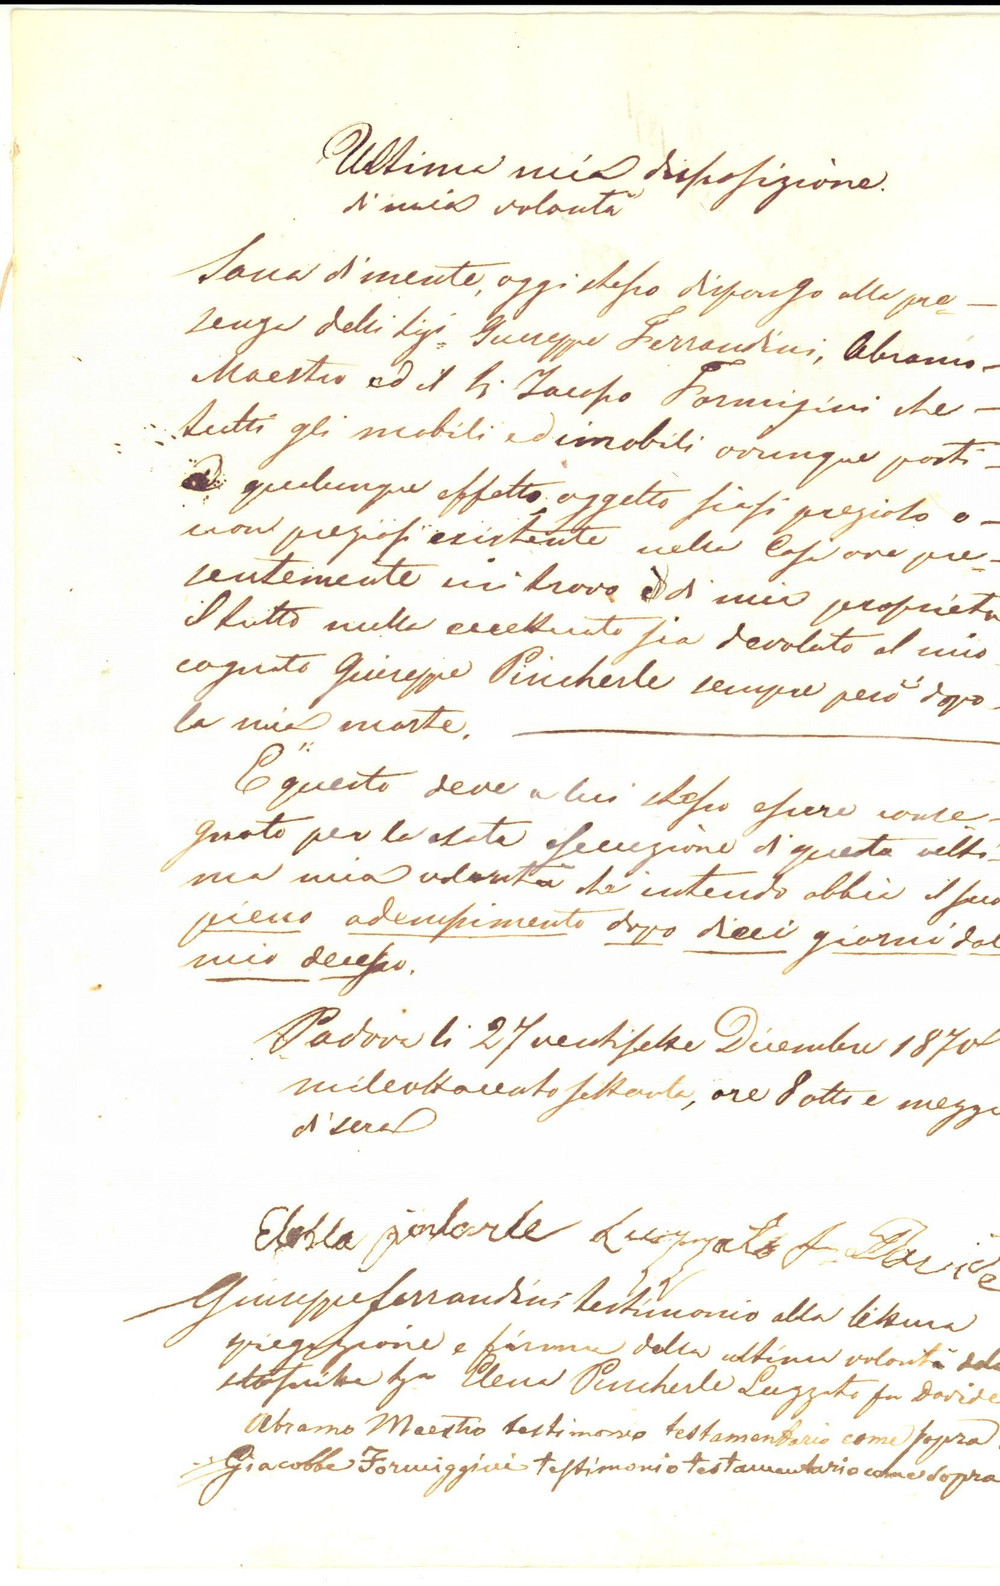 Ultima mia disposizione
di mia volontà
Sana di mente, oggi stesso dispongo alla pre=
senza delli Sigi Giuseppe Ferrandini, Abramo
Maestro ed il Si Jacopo Formigini che
tutti gli mobili ed imobili ovunque posti
e qualunque effetto, oggetto siasi prezioso o
non preziosi esistente nella Casa ove pre=
sentemente mi trovo e di mia proprietà
il tutto nulla eccettuato sia devoluto al mio
cognato Giuseppe Pincherle sempre però dopo
la mia morte.
E questo deve a lui stesso essere conse=
gnato per la esata esecuzione di questa ulti=
ma mia volontà che intendo abbia il suo
pieno adempimento dopo dieci giorni dal
mio decesso.
Padova li 27 ventisette Dicembre 1870
milleottocentosettanta, ore 8 otto e mezza
di sera
Luzzato fu Davide
Giuseppe Ferrandini testimonio alla lettura
spiegazione e firma della ultima volontà della
Elena Pincherle Luzzato fu Davide
Abramo Maestro testimonio testamentario come sopra.
Giacobbe Formiggini testimonio testamentario come sopra